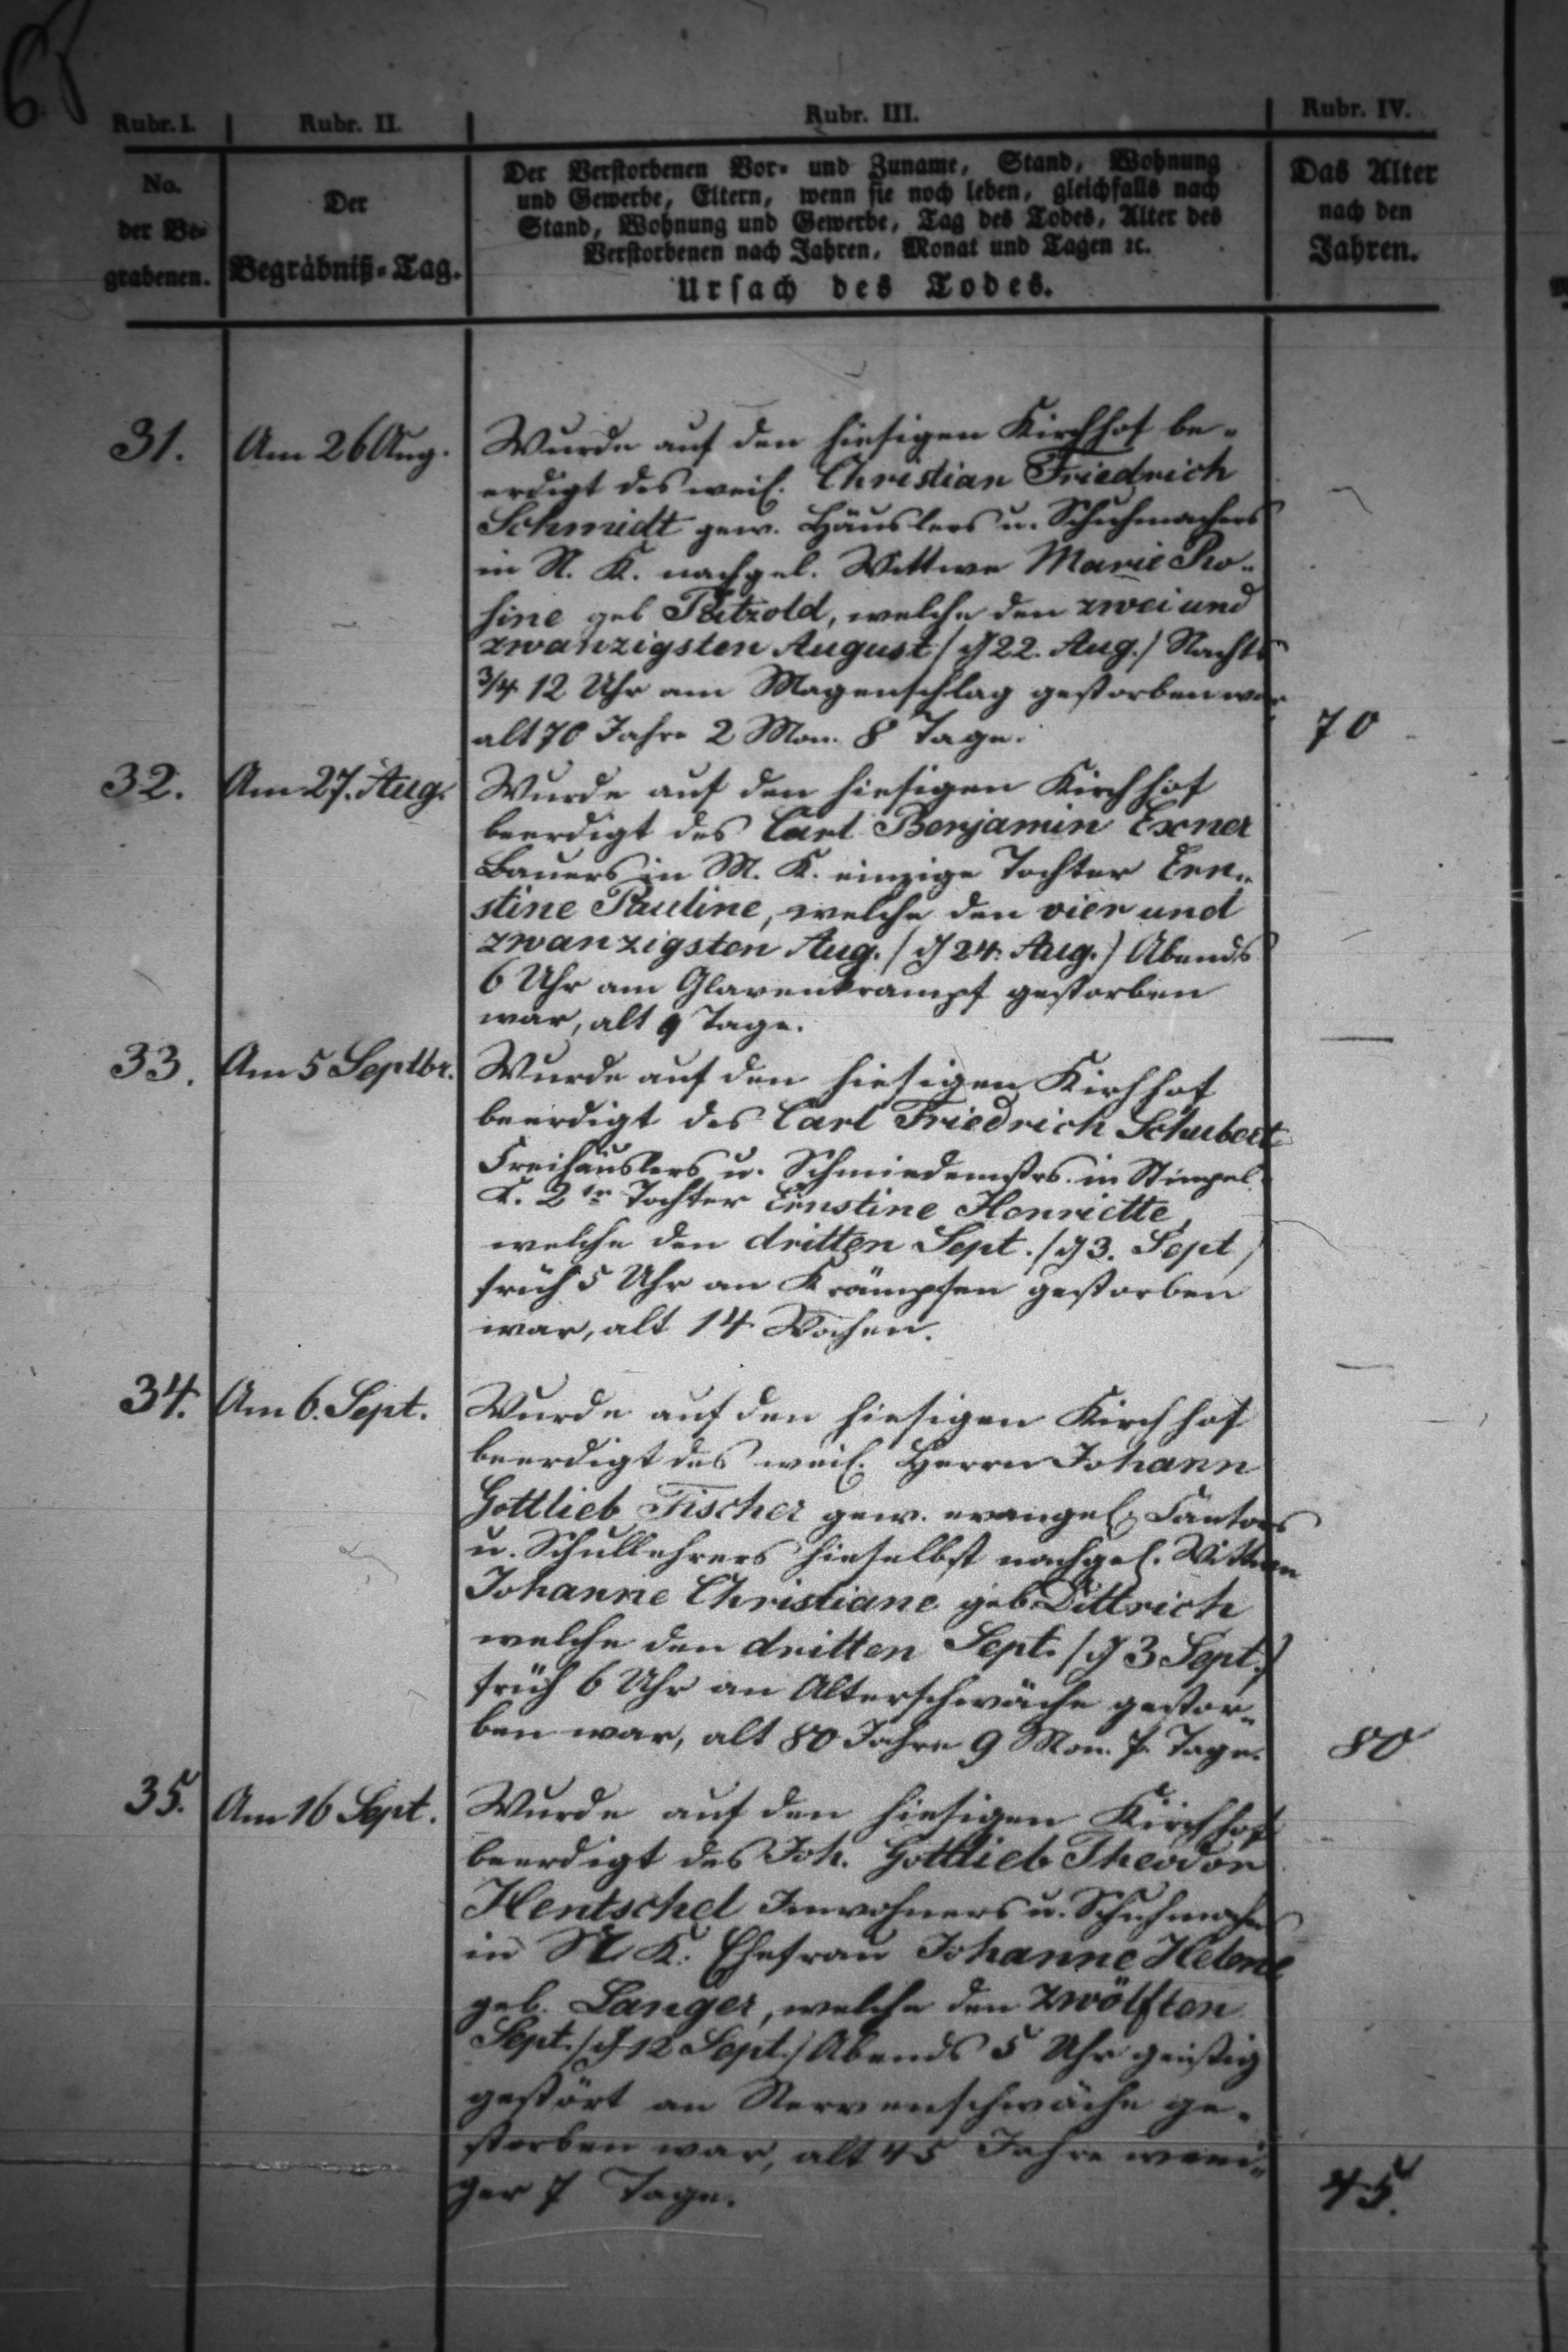 68
Rubr. I. Rubr. II. Rubr. III. Rubr. IV.
No. der Be-grabenen.
Der Begräbniß-Tag.
Der Verstorbenen Vor- und Zuname, Stand, Wohnung
und Gewerbe, Eltern, wenn sie noch leben, gleichfalls nach
Stand, Wohnung und Gewerbe, Tag des Todes, Alter des
Verstorbenen nach Jahren, Monat und Tagen ꝛc.
Ursach des Todes.
Das Alter
nach den
Jahren.
31. Am 26 Aug. Wurde auf den hiesigen Kirchhof be-
erdigt des weil. Christian Friedrich
Schmidt gew. Häuslers u. Schuhmachers
in N. K. nachgel. Wittwe Marie Ro-
sine geb Pätzold, welche den zwei und
zwanzigsten August / d 22. Aug. / Nachts
3/4 12 Uhr am Magenschlag gestorben war,
alt 70 Jahre 2 Mon. 8 Tage. 70
32. Am 27. Aug. Wurde auf den hiesigen Kirchhof
beerdigt des Carl Benjamin Exner
Bauers in M. K. einzige Tochter Ern-
stine Pauline, welche den vier und
zwanzigsten Aug. / d 24. Aug. / Abends
6 Uhr am gestorben
war, alt 9 Tage. —
33. Am 5 Septbr. Wurde auf den hiesigen Kirchhof
beerdigt des Carl Friedrich Schubert
Freihäuslers u. Schmiedemstrs. in
K. 2te Tochter Ernstine Henriette,
welche den dritten Sept. / d 3. Sept /
früh 5 Uhr an Krämpfen gestorben
war, alt 14 Wochen. —
34. Am 6. Sept. Wurde auf den hiesigen Kirchhof
beerdigt des weil. Herrn Johann
Gottlieb Fischer gew. evangel. Cantors
u. Schullehrers hieselbst nachgel. Wittwe
Johanne Christiane geb. Dittrich
welche den dritten Sept. / d 3 Sept. /
früh 6 Uhr an Alterschwäche gestor-
ben war, alt 80 Jahre 9 Mon. 7 Tage. 80
35. Am 16 Sept. Wurde auf den hiesigen Kirchhof
beerdigt des Joh. Gottlieb Theodor
Hentschel Inwohners u. Schuhmachers
in N. K. Ehefrau Johanne Helene
geb. Langer, welche den zwölften
Sept. / d 12 Sept. / Abends 5 Uhr geistig
gestört an Nervenschwäche ge-
storben war, alt 45 Jahre weni-
ger 7 Tage. 45.